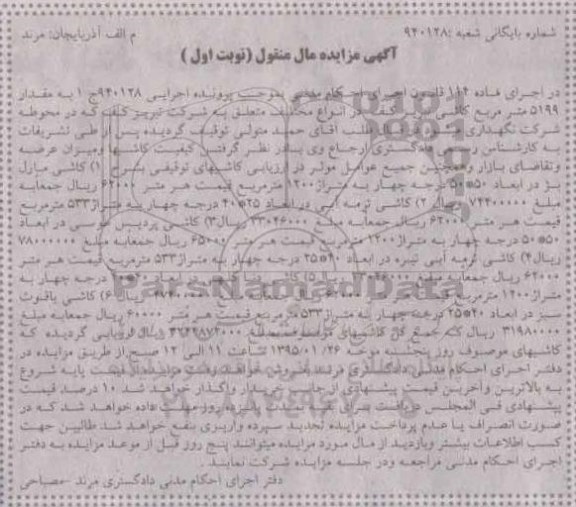 شماره بایگانی شعبه :۹۴۰۱۲۸ م الف آذربایجان: مرند
آگهی مزایده مال منقول (نوبت اول )
در اجرای ماده ۱۱۴ قانون اجرای احکام مدنی بموجب پرونده اجرایی ۹۴۰۱۲۸ج ۱ به مقدار
۵۱۹۹ متر مربع کاشی تبریز کف در انواع مختلف متعلق به شرکت تبریز کف که در محوطه
شرکت نگهداری طلب آقای حمد متولی توقیف گردیده پس از طی تشریفات
به کارشناس رسمی دادگستری ارجاع وی با در نظر گرفتن کیفیت کاشیها ومیزان عرضه
وتقاضای بازار وهمچنین جمیع عوامل موثر در ارزیابی کاشیهای توقیفی بشرح ۱) کاشی مارل
بژ در ابعاد ۵۰*۵۰ درجه چهار به متراژ ۱۲۰۰ مترمربع قیمت هر متر ۶۲۰۰۰ ریال جمعا به
مبلغ ۷۴۴۰۰۰۰۰ ریال ۲) کاشی ترمه آبی در ابعاد ۲۵*۴۰ درجه چهار به متراژ ۵۳۳ مترمربع
قیمت هر متر ۶۲۰۰۰ ریال جمعا به مبلغ ۳۳۰۴۶۰۰۰ ریال ۳) کاشی پردیس طوسی در ابعاد
۵۰*۵۰ درجه چهار به متراژ ۱۲۰۰ مترمربع قیمت هر متر ۶۵۰۰۰ ریال جمعا به مبلغ ۷۸۰۰۰۰۰۰
ریال ۴) کاشی ترمه آبی تیره در ابعاد ۴۰*۲۵ درجه چهار به متراژ ۵۳۳ مترمربع قیمت هر متر
۶۲۰۰۰ ریال جمعا به مبلغ ۳۳۰۴۶۰۰۰ ریال ۵) کاشی در ابعاد درجه چهار به
متراژ ۱۲۰۰ مترمربع قیمت ریال ۶) کاشی یاقوت
سبز در ابعاد ۴۰*۲۵ درجه چهار به متراژ ۵۳۳ مترمربع قیمت هر متر ۶۰۰۰۰ ریال جمعا به مبلغ
۳۱۹۸۰۰۰۰ ریال که جمع کل کاشیهای موصوف بمبلغ ریال ارزیابی گردیده که
کاشیهای موصوف روز پنجشنبه مورخه ۱۳۹۵/۰۱/۲۶ ساعت ۱۱ الی ۱۲ صبح از طریق مزایده در
دفتر اجرای احکام مدنی دادگستری مرند بفروش خواهد رفت مزایده از قیمت پایه شروع
به بالاترین وآخرین قیمت پیشنهادی از جانب خریدار واگذار خواهد شد ۱۰ درصد قیمت
پیشنهادی فی المجلس دریافت برای بقیه قیمت پانزده روز مهلت داده خواهد شد که در
صورت انصراف یا عدم پرداخت مزایده تجدید سپرده واریزی بنفع خواهد شد طالبین جهت
کسب اطلاعات بیشتر وبازدید از مال مورد مزایده میتوانند پنج روز قبل از موعد مزایده به دفتر
اجرای احکام مدنی مراجعه ودر جلسه مزایده شرکت نمایند .
دفتر اجرای احکام مدنی دادگستری مرند -مصباحی
ParsNamadData